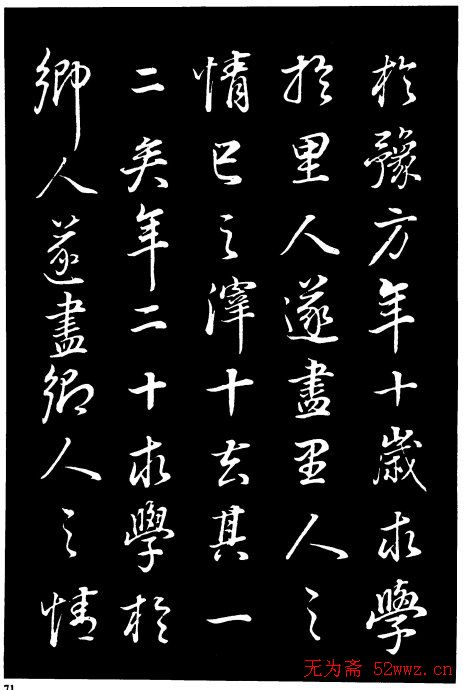 於豫方年十歲求學
於里人遂盡里人之
情己之滓十去其一
二矣年二十求學於
鄉人遂盡鄉人之情
无为斋 52wwz.cn
71